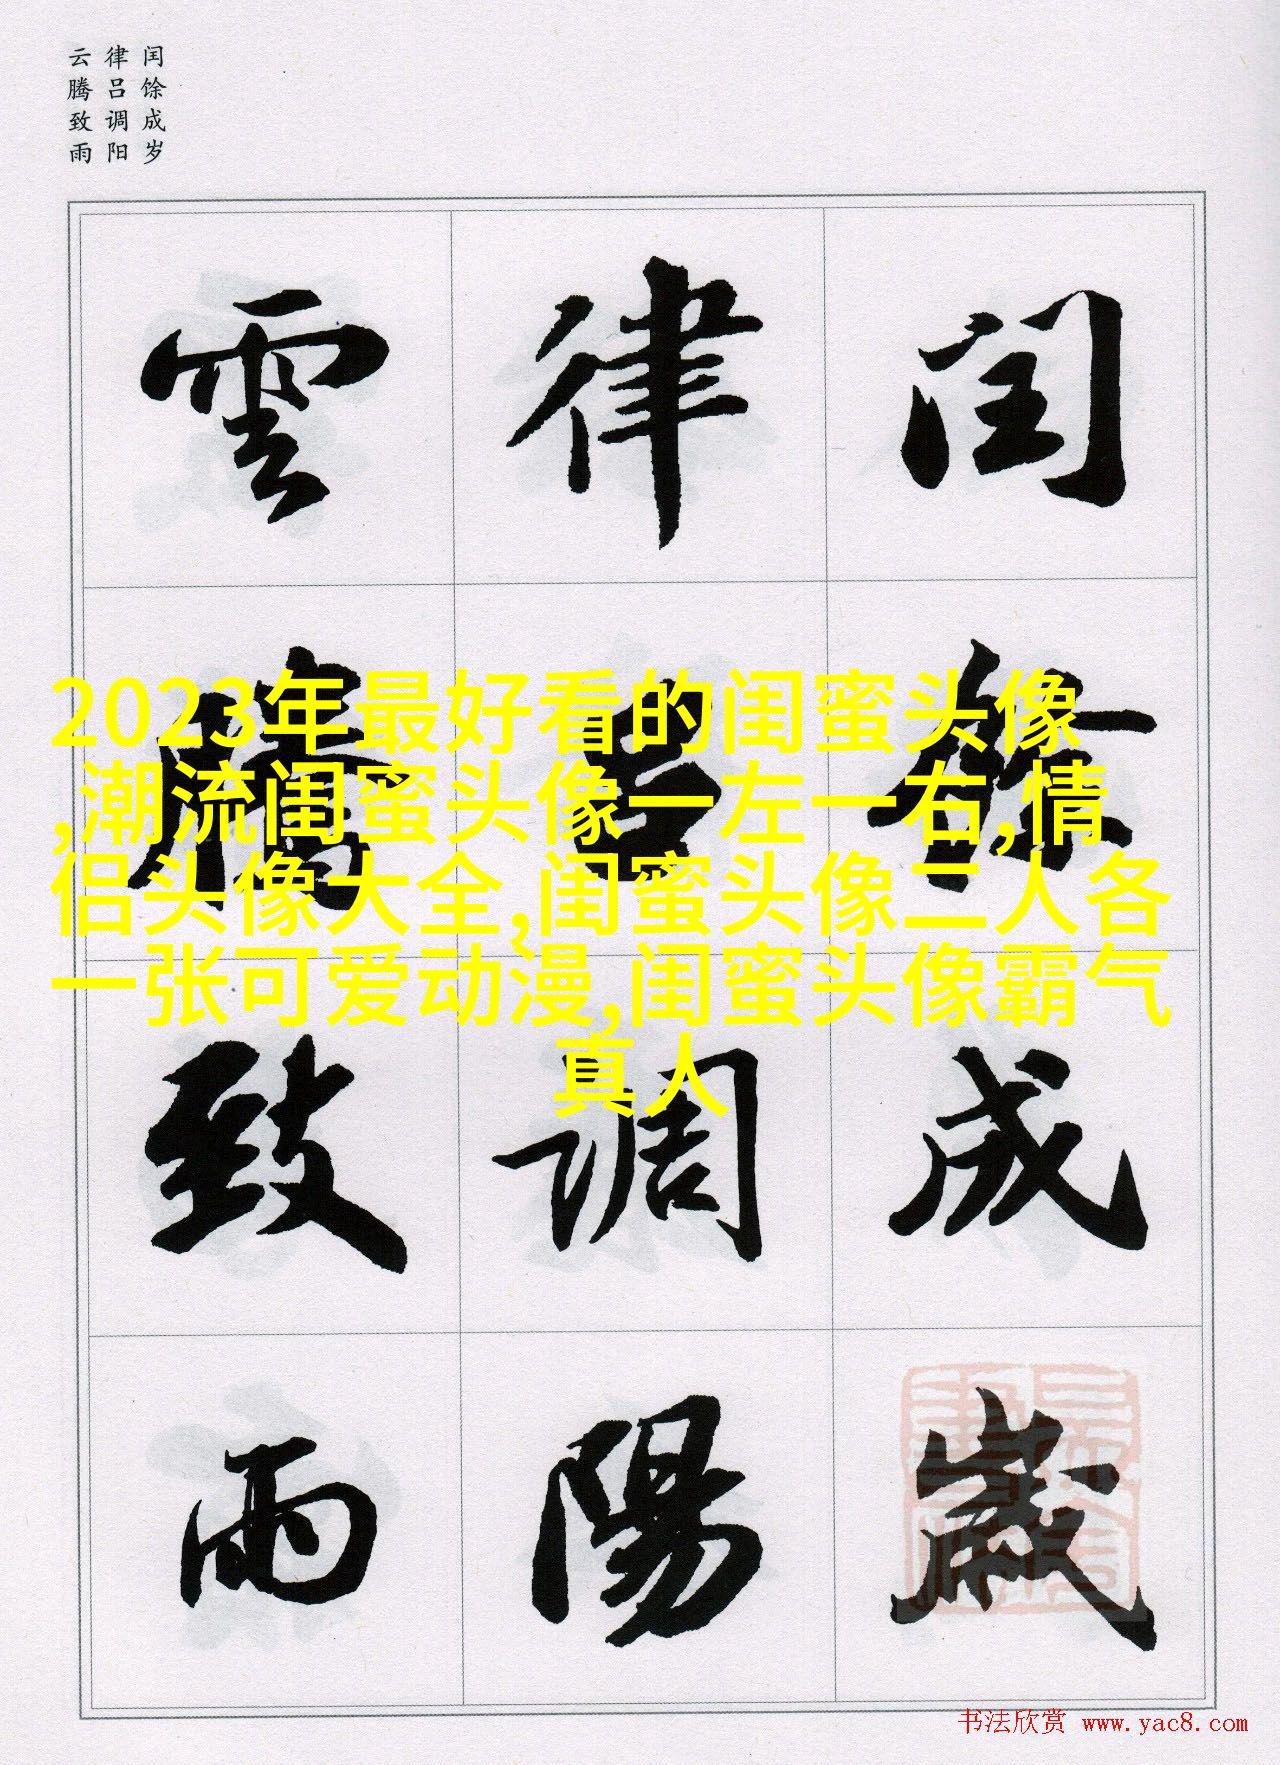 闰馀成岁
律吕调阳
云腾致雨
閏餘成歲
律呂調陽
雲騰致雨
2023年最好看的闺蜜头像
,潮流闺蜜头像一左一右,情
侣头像大全,闺蜜头像二人各
一张可爱动漫,闺蜜头像霸气
真人
书法欣赏 www.yac8.com